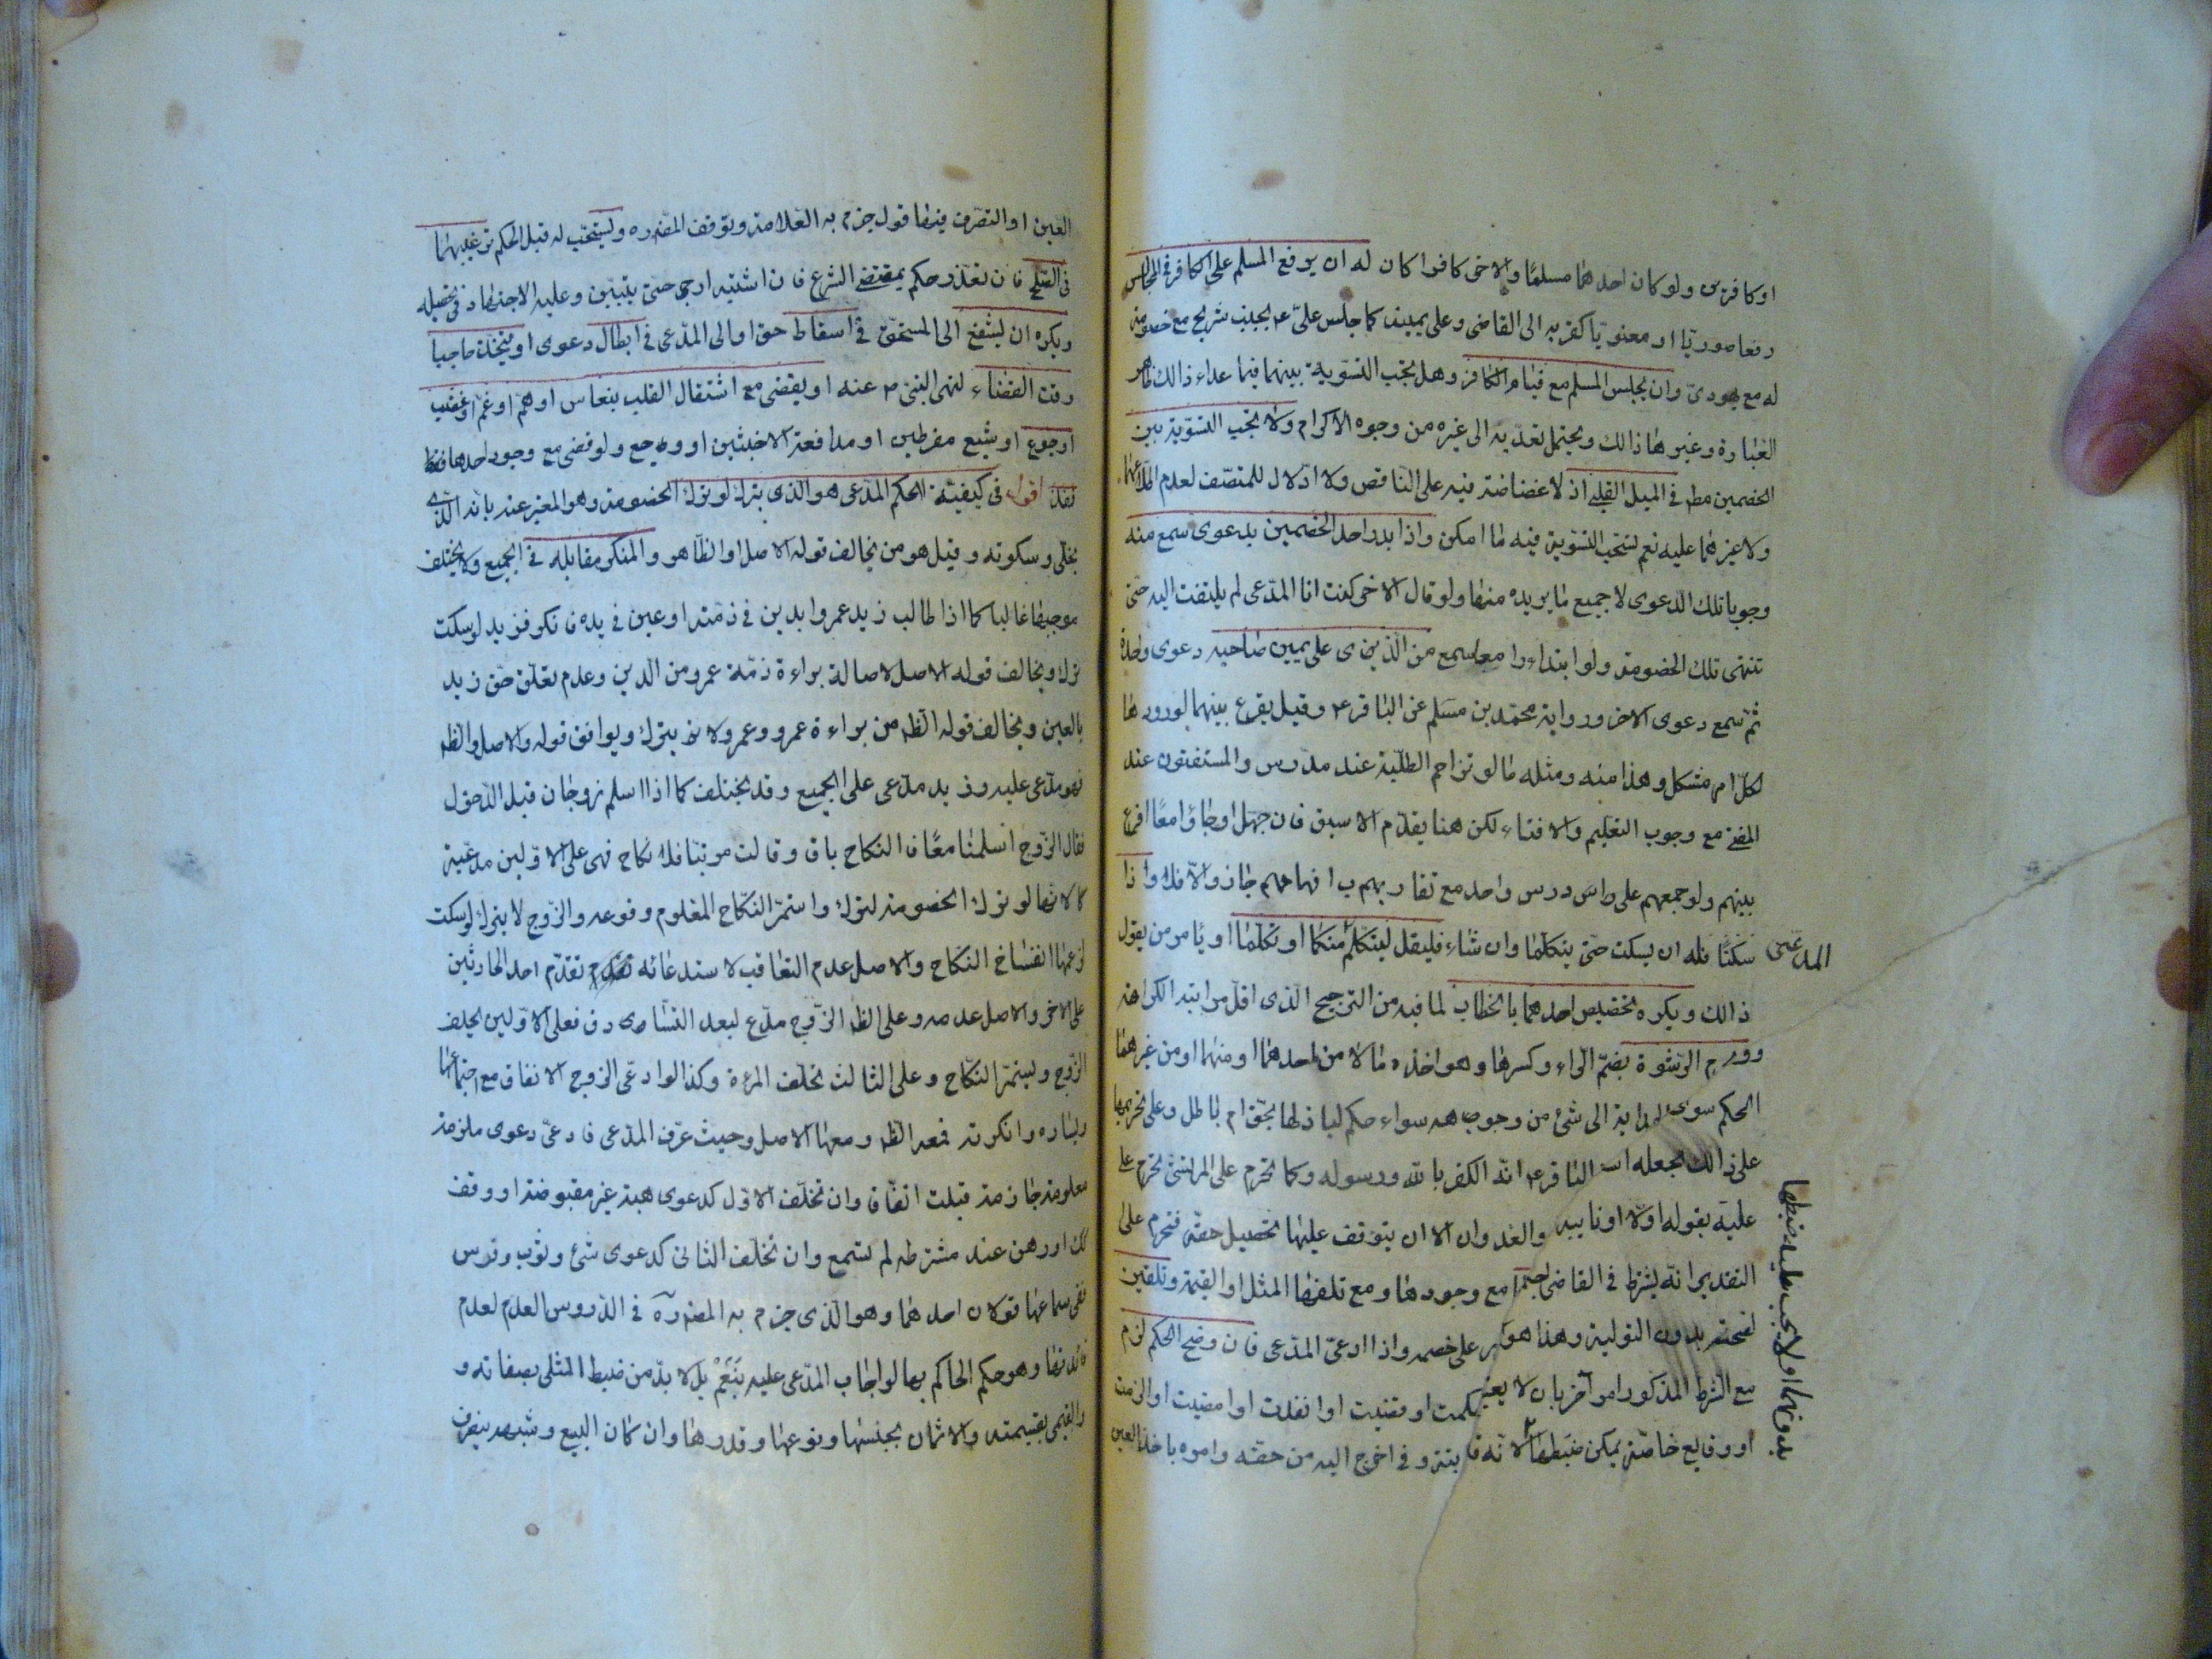 او كافرين ولو كان احدهما مسلمًا والاخر كافرا كان له ان يرفع المسلم على الكافر فى المجالس
رفعا صوريّا او معنويّا كقربه الى القاضى وعلى يمينه كما جلس علىّ ع بجنب شريح مع خصومة
له مع يهودىّ وان يجلس المسلم مع قيام الكافر وهل يجب التسوية بينهما فيما عداء ذالك ظاهر
العبارة وغيرها ذالك ويحتمل تعدّيه الى غيره من وجوه الاكرام ولا يجب التسوية بين
الخصمين مطم فى الميل القلبى اذ لا غضاضة فيه على الناقص ولا ادلال للمتصّف لعدم اطّلاعهما
ولا غيرهما عليه نعم يستحّب التسوية فيه ما امكن واذا بدر احد الخصمين بدعوى سمع منه
وجوبا تلك الدّعوى لا جميع ما يريده منها ولو قال الاخر كنت انا المدّعى لم يلتفت اليه حتّى
تنتهى تلك الخصومة ولو ابتداءا معا سمع من الّذى على يمين صاحبه دعوى واحدة
ثمّ سمع دعوى الاخر ورواية محمّد بن مسلم عن الباقر ع وقيل يقرع بينهما لورودها
لكلّ امر مشكل وهذا منه ومثله ما لو تزاحم الطلبة عند مدّرس والمستفتون عند
المفتى مع وجوب التعليم والافتاء لكن هنا يقدّم الاسبق فان جهل او جاؤا معًا اقرع
بينهم ولو جمعهم على درس واحد مع تقاربهم افهامهم جاز والّا فلا واذا
المدّعين سكتا فله ان يسكت حتّى يتكلّما وان شاء فليقل ليتكلّم منكما او تكلّما او يامر من يقول
ذالك ويكره تخصيص احدهما بالخطاب لما فيه من الترجيح الّذى اقلّ مراتبه الكراهة
الرّشوة بضمّ الرّاء وكسرها وهو اخذه مالا من احدهما او منهما او من غيرهما
الحكم الى شئ من وجوب سواء حكم لباذلها بحقّ ام باطل وعلى تحريمها
على ذالك الباقر ع انّه الكفر بالله ورسوله وكما تحرم على المرتشى تحرم على
عليه بقوله اوّلا او نايبه والعدوان الا ان يتوقف عليها تحصيل حقّه فتحرم على
التقدير انّه يشترط فى القاضى مع وجودها ومع تلفها المثل او القيمة وتلقين
بدون التولية وهذا هو على خصمه واذا ادعىّ المدّعى فان وضح الحكم لزم
مع الشرط المذكور امر آخر بان لا يعين حكمت او قضيت او انفذت او امضيت او الزمت
او وقايع خاصّة يمكن ضبطها لانّه وفى اخرج اليه من حقّه وامره باخذ العين
بدونها ولا يجب عليه ضبطها
العين او التصرّف فيها قول جزم به العلامة وتوقف المصّ ره ويستحّب له قبل الحكم ترغيبهما
فى الصّلح فان تعذّر حكم بمقتضى الشرع فان اشتبه ارجى حتّى يتبيّن وعليه الاجتهاد فى تحصيله
ويكره ان يشفع الى المستحقّ فى اسقاط حق او الى المدّعى فى ابطال دعوى او يتّخذ حاجبا
وقت القضاء لنهى النبىّ ص عنه او يقضى مع اشتغال القلب بنعاس او همّ او غمّ او غضب
او جوع او شبع مفرطين او مدافعة الاخبثين او وجع ولو قضى مع وجود احدها فقد
نفذ اقول فى كيفيّة الحكم المدّعى هو الّذى يترك لو ترك الخصومة وهو المعبّر عنه بانّه الّذى
يخلّى وسكوته وقيل هو من يخالف قوله الاصل او الظّاهر والمنكر مقابله فى الجميع ولا يختلف
موجبها غالبا كما اذا طالب زيد عمروا بدين فى ذمّته او عين فى يده فانكر فزيد لو سكت
ترك ويخالف قوله الاصل لاصالة براءة ذمّة عمرو من الدّين وعدم تعلّق حقّ زيد
بالعين ويخالف قوله الظّم من براءة عمرو وعمرو لا يترك ويوافق قوله والاصل والظم
فهو مدّعى عليه وزيد مدّعى على الجميع وقد يختلف كما اذا اسلم زوجان قبل الدّخول
فقال الزّوج اسلمنا معًا فالنكاح باق وقالت مرتبّا فلا نكاح فهى على الاوّلين مدّعية
لانها لو ترك الخصومة لترك واستمرّ النكّاح المعلوم وقوعه والزّوج لا يترك لو سكت
لزعمها انفساخ النكاح والاصل عدم التعاقب لاستدعائه تقدّم احد الحادثين
على الاخر والاصل عدمه وعلى الظم الزّوج مدّع لبعد التّساوق فعلى الاوّلين يحلف
الزّوج ويستمرّ النكّاح وعلى الثالث تحلف المرءة وكذا لو ادعّى الزوج الانفاق مع اجتماعهما
ويساره وانكرته فمعه الظم ومعها الاصل وحيث عرّف المدّعى فادعىّ دعوى ملزمة
معلومة جازمة قبلت اتفاقا وان تخلّف الاوّل كدعوى هبة غير مقبوضة او وقف
كك او رهن عند مشترطه لم تسمع وان تخلّف الثانى كدعوى شئ وثوب وفرس
ففى سماعها قولان احدهما وهو الّذى جزم به المصّ ره فى الدّروس العدم لعدم
فائدتها وهو حكم الحاكم بها لو اجاب المدّعى عليه بنَعَمْ بل لا بدّ من ضبط المثلى بصفاته و
والقيمى بقيمته والاثمان بجنسها ونوعها وقدرها وان كان البيع وشبهه ينصرف